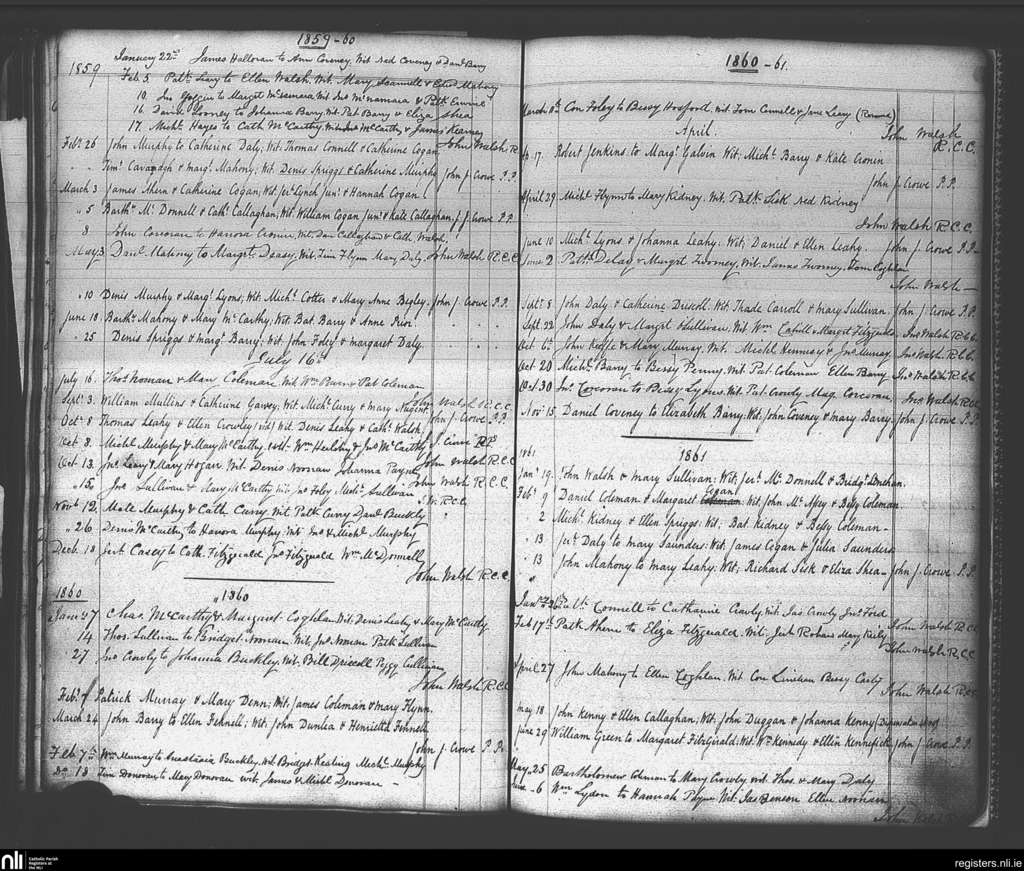 1859-60
January 22nd James Halloran to Ann Coveney, Wit Ned Coveney & Danl Barry
1859 Feb. 5 Patk Leary to Ellen Walsh, Wit. Mary Scannell & Mahony
10. Jno to Margt McNamara Wit Jno McNamara & Patk
16. David Toomey to Johanna Barry. Wit. Pat Barry & Eliza Shea
17. Michl Hayes to Cath McCarthy, Wit. Jno McCarthy & James Kearney
John Walsh R
Feby 26 John Murphy to Catherine Daly; Wit; Thomas Connell & Catherine Cogan
" " Timy Cavanagh & Margt Mahony; Wit. Denis Spriggs & Catherine Murphy John J. Crowe P.P.
March 3 James Ahern & Catherine Cogan; Wit; Jery Lynch Junr & Hannah Cogan
" 5 Barthw Mc Donnell & Cathe Callaghan; Wit; William Cogan Junr & Kate Callaghan J. J. Crowe P.P.
8 John Corcoran to Hanora Cronin, Wit. Dan Callaghan & Cath. Walsh
May 3 Danl Mahony to Margt Deasy, Wit. Tim Flynn Mary Daly John Walsh R.C.C
" 10 Denis Murphy & Margt Lyons; Wit; Michl Cotter & Mary Anne Begley. John J. Crowe P.P.
June 18 Barthw Mahony & Mary Mc Carthy. Wit: Bat. Barry & Anne
" 25 Denis Spriggs & Margt Barry; Wit John Foley & Margaret Daly.
July 16th
July 16. Thos Noonan & Mary Coleman Wit Wm & Pat Coleman
John Walsh R.C.C.
Septr 3. William Mullins & Catherine Garvey; Wit. Michl Curry & Mary Nugent John J. Crowe P.P.
Octr 8 Thomas Leahy & Ellen Crowley; Wit Denis Leahy & Cathe Walsh
Oct 8. Michl Murphy & Mary McCarthy. Wit. Wm Hurley & Jno McCarthy J. Crowe P.P.
Oct 13. Jno Leary & Mary Hogan. Wit. Denis Noonan Johanna Payne John Walsh R.C.C.
" 15. Jno Sullivan & Mary McCarthy Wit. Jno Foley Michl Sullivan John Walsh R.C.C.
Novr 12. Mate Murphy & Cath. Curry Wit Patk Curry Danl Buckley
" 26 Denis McCarthy to Hanora Murphy. Wit Jno & Michl Murphy
Decb. 18 Jert Casey to Cath. Fitzgerald Jno Fitzgerald Wm McDonnell
John Walsh R.C.C.
1860 " 1860
Jan 7 Chas McCarthy & Margaret Coghlan Wit. Denis Leahy & Mary McCarthy
14 Thos Sullivan to Bridget Noonan Wit. Jno Patk Sullivan
" 27 Jno Crowly to Johanna Buckley. Wit. Bill Driscoll Peggy Cullinan
John Walsh R.C.C
Feby 7 Patrick Murray & Mary Denn; Wit; James Coleman & Mary Flynn.
March 24 John Barry to Ellen Fennell; Wit; John Dunlea & Henrietta Fennell
John J Crowe P.P.
Feb 7th Wm Murray to Anastasia Buckley. Wit. Bridget Keating Michl Murphy
Do 18 Tim Donovan to Mary Donovan Wit. James & Michl Donovan
1860-61.
March Con Foley to Bessy Hosford. Wit Tom Connell & Jane Leary
April.
John Walsh R.C.C.
Ap 17. Robert Jenkins to Margt Galvin Wit; Michl Barry & Kate Cronin
John J Crowe P.P.
April 29 Michl Flynn to Mary Kidney. Wit. Patk Sisk Ned Kidney
John Walsh R.C.C.
June 10 Michl Lyons & Johanna Leahy; Wit; Daniel & Ellen Leahy. John J Crowe P.P.
June 2 Patk Delay & Margt Twomey. Wit. James Twomey, Tom Coghlan
John Walsh
Septr 8 John Daly & Catherine Driscoll. Wit Thade Carroll & Mary Sullivan John J. Crowe P.P.
Sept. 22 John Daly & Margt Sullivan. Wit Wm Cahill Margt Fitzgerald Jno Walsh R.C.C.
Oct 6th John Keeffe & Mary Murray. Wit. Michl Hennesy & Jno Murray Jno Walsh R.C.C.
Oct 20 Michl Barry to Bessy Penny. Wit Pat. Coleman Ellen Barry Jno Walsh R.C.C
Oct 30 Jno Corcoran to Bessy Lyons Wit. Pat Crowly Mag. Corcoran Jno Walsh R.C.C
Novr 15 Daniel Coveney to Elizabeth Barry. Wit; John Coveney & Mary Barry John J. Crowe P.P.
1861 1861
Jany 19. John Walsh & Mary Sullivan: Wit; Jery Mc Donnell & Bridgt Linehan
Feby 9 Daniel Coleman & Margaret Cogan. Wit; John Mc & Betsy Coleman
2 Michl Kidney & Ellen Spriggs; Wit; Bat Kidney & Betsy Coleman
" 13 Jery Daly to Mary Saunders: Wit; James Cogan & Julia Saunders
" 13 John Mahony to Mary Leahy; Wit; Richard Sisk & Eliza Shea John J. Crowe P.P.
Jany 26th Connell to Catharine Crowly Wit Jas Crowly Jno Ford
John Walsh R.C.C
Feb 17th Patk Ahern to Eliza Fitzgerald. Wit. Jert Mary Kiely
John Walsh R.C.C
April 27 John Mahony to Ellen Coghlan. Wit Con Linehan Bessy
John Walsh R.C.C
May 18 John Kenny & Ellen Callaghan; Wit; John Duggan & Johanna Kenny
June 29 William Green to Margaret FitzGerald; Wit. Wm Kennedy & Ellen Kennefick John J. Crowe P.P.
May 25 Bartholomew Coleman to Mary Crowly Wit. Thos. & Mary Daly
June 6 Wm Lydon to Hannah Payne. Wit Jas Benson Ellen Noonan
John
nli Catholic Parish Registers at the NLI
registers.nli.ie